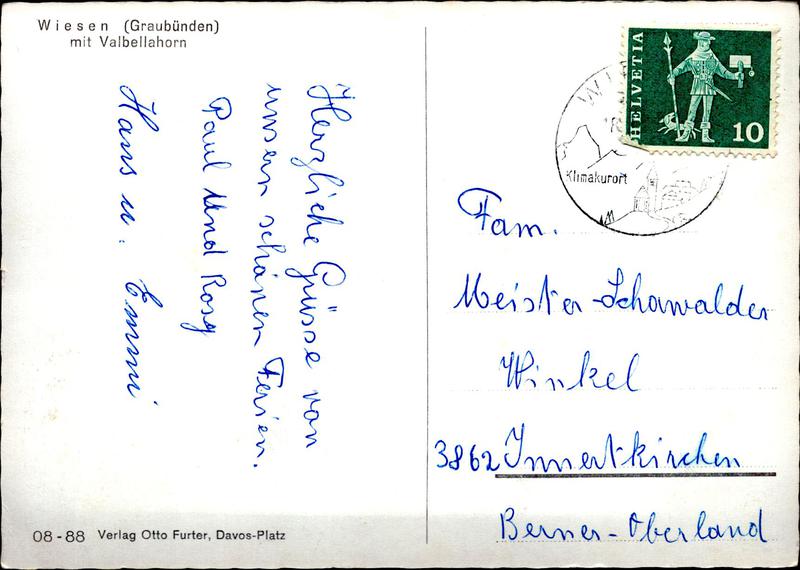 Wiesen (Graubünden)
mit Valbellahorn
Herzliche Grüsse von
unsern schönen Ferien.
Paul Und Rosy
Hans u. Emmi
08-88 Verlag Otto Furter, Davos-Platz
HELVETIA
10
Klimakurort
Fam.
Meister-Schawalder
Winkel
3862 Innertkirchen
Berner-Oberland